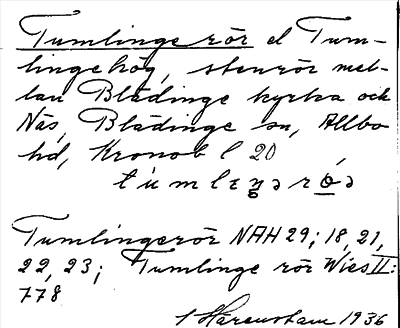 Tumlinge rör el Tum-
linge hög, stenrör mel-
lan Blädinge kyrka och
Näs, Blädinge sn, Allbo
hd, Kronob l 20
Tumlingerör NAH 29; 18, 21,
22, 23; Tumlinge rör Wies II:
778
Härenstam 1936